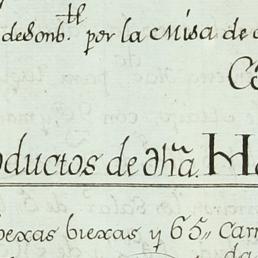 deSonb.te por la Misa de
Ca
oductos de dha. Ha
bexas viexas y 65,, Carn
da